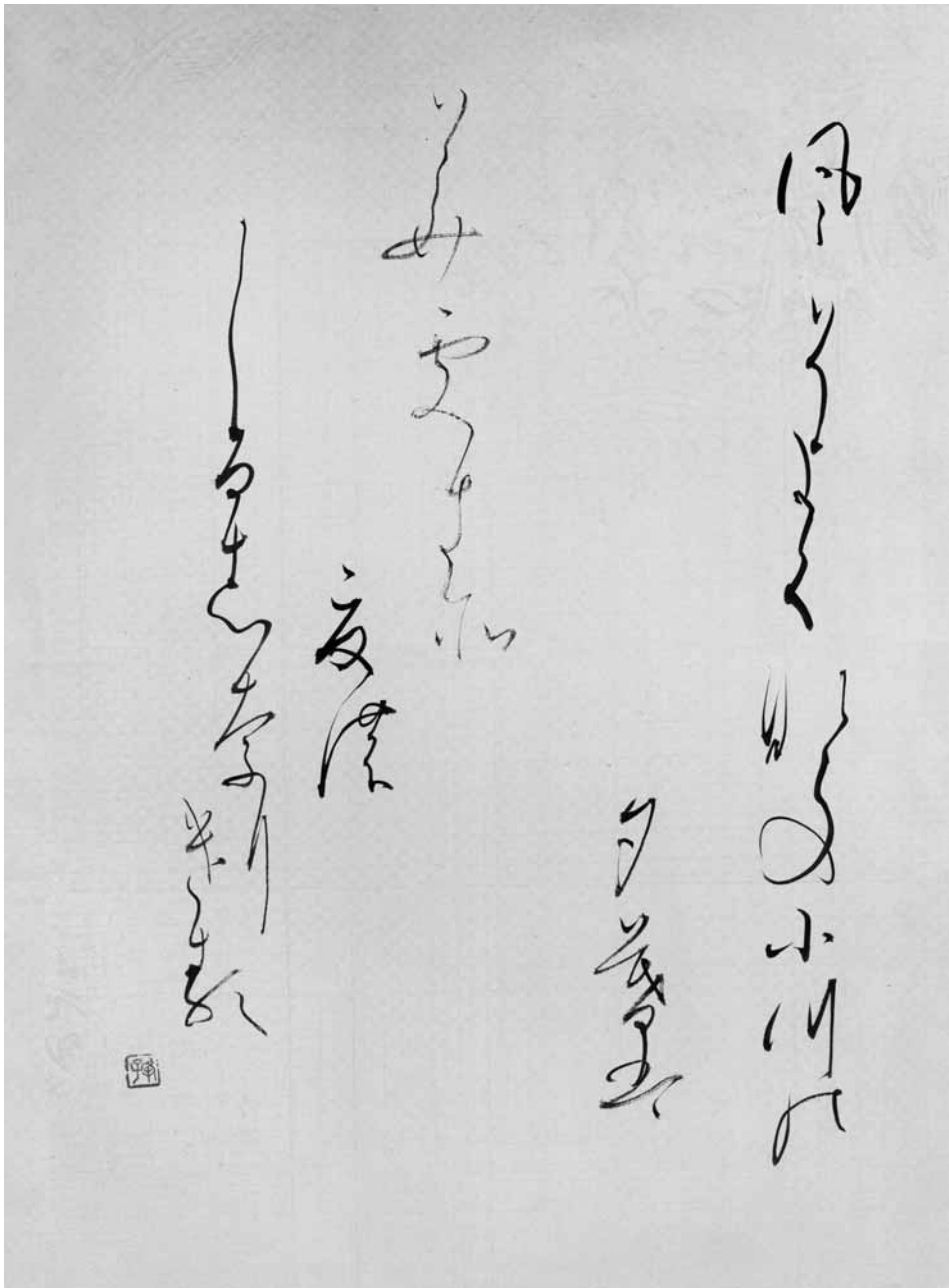 風そよくならの小川の
夕暮は
みそきそ
夏の
しるしなりける